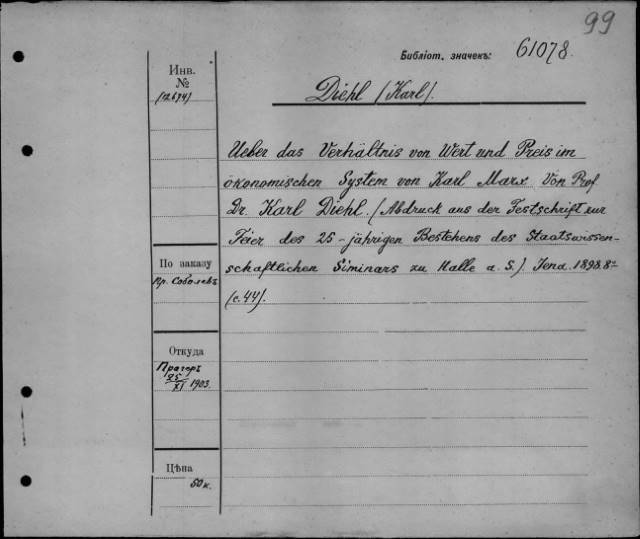 99
Библіот. значекъ: 61078.
Инв.
№
(12694)
Diehl (Karl).
Ueber das Verhältnis von Wert und Preis im
ökonomischen System von Karl Marx. Von Prof
Dr. Karl Diehl. (Abdruck aus der Festschrift zur
Feier des 25-jährigen Bestehens des Staatswissen-
schaftlichen Siminars zu Halle a. S.) Jena. 1898. 8º
(с. 44).
По заказу
Пр. Соболевъ
Откуда
Прагеръ
25/XI 1903.
Цѣна
50 к.